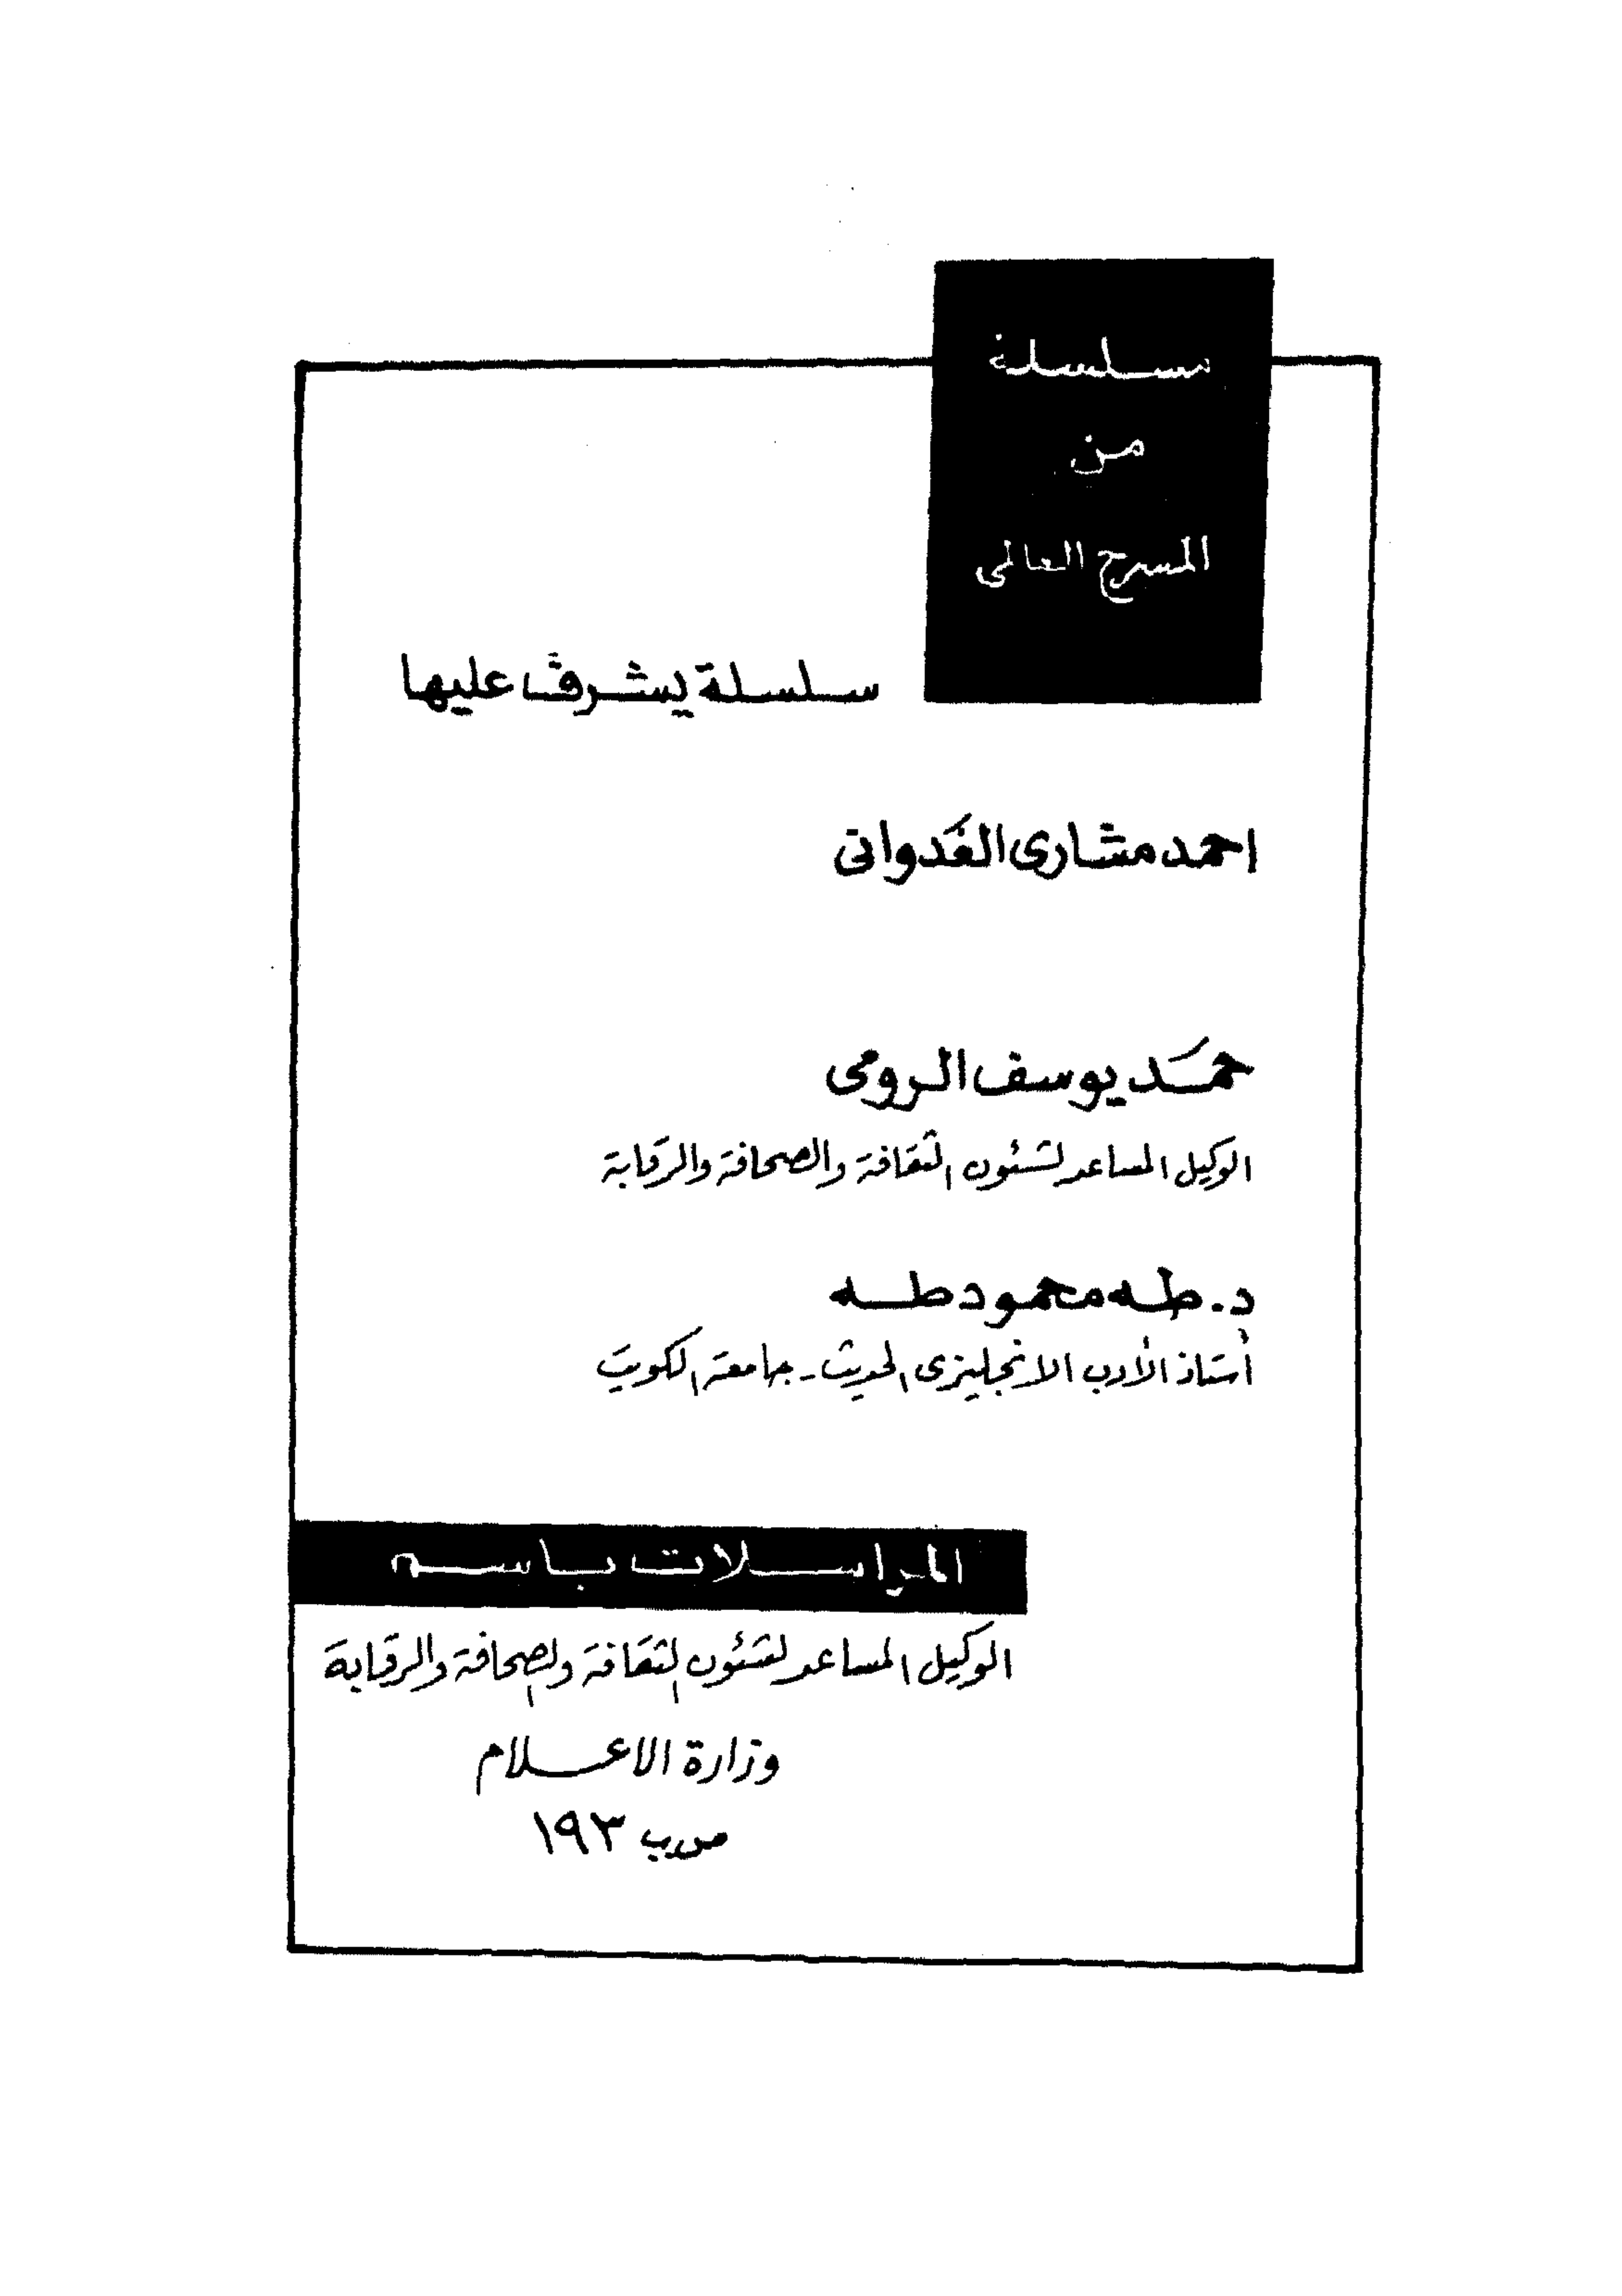 سلسلة
من
المسرح العالمى
سلسلة يشرف عليها
احمد مشارى العدوانى
حمد يوسف الرومى
الوكيل المساعد لشئون الثقافة والصحافة والرقابة
د. طه محمود طه
أستاذ الأدب الانجليزى الحديث - جامعة الكويت
المراسلات باسم
الوكيل المساعد لشئون الثقافة والصحافة والرقابة
وزارة الاعلام
ص.ب ١٩٣